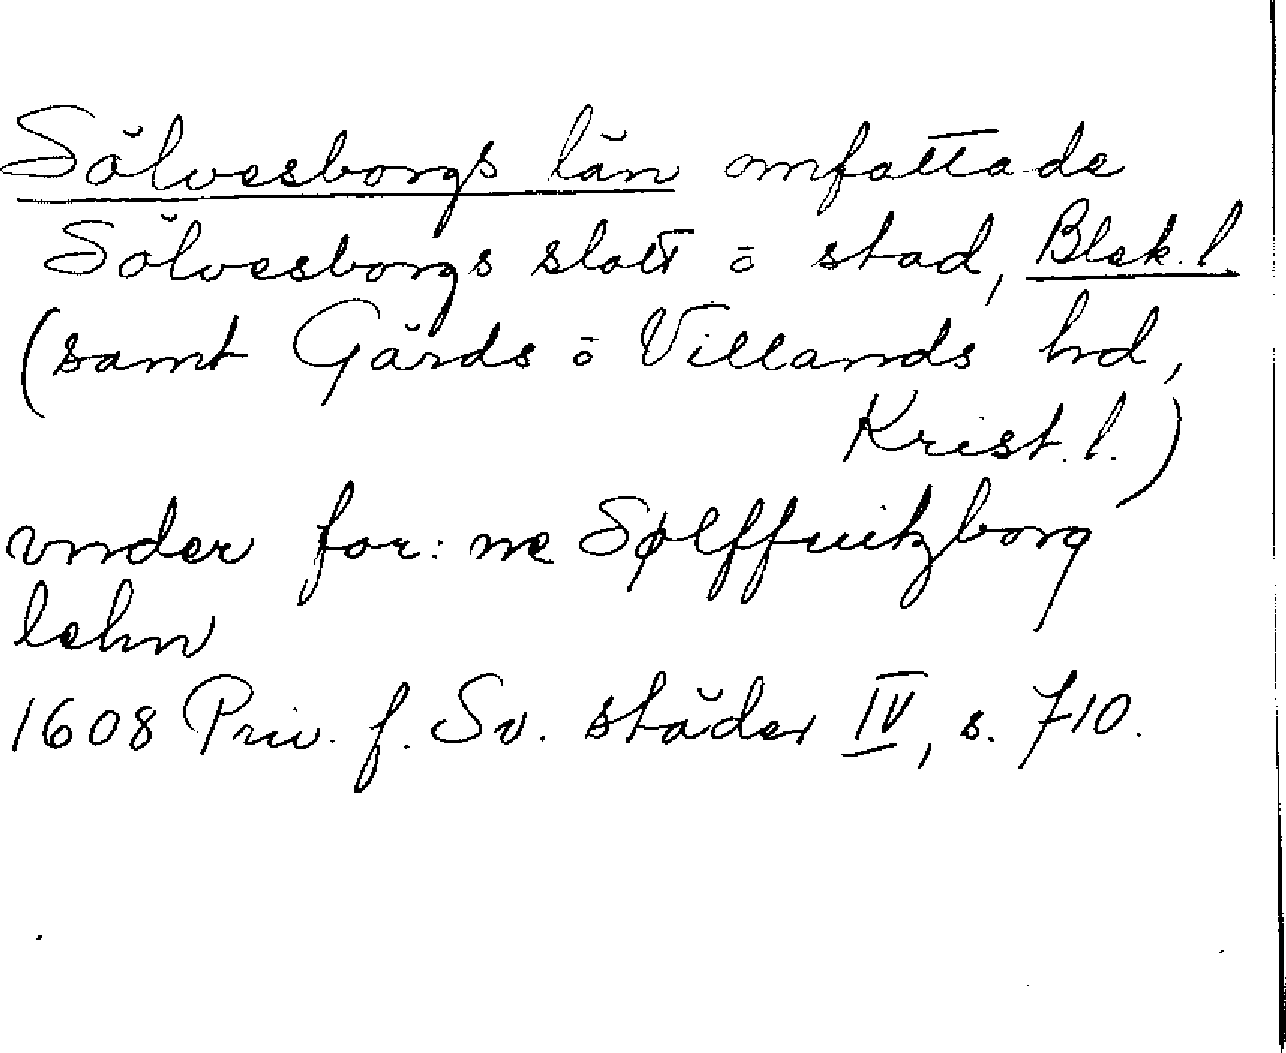 Sölvesborgs län omfattade
Sölvesborgs slott o stad, Blek. l.
(samt Gärds o Villands hd,
Krist. l.)
vnder for: ne Sølffuitzborg
lehn
1608 Priv. f. Sv. städer IV, s. 710.